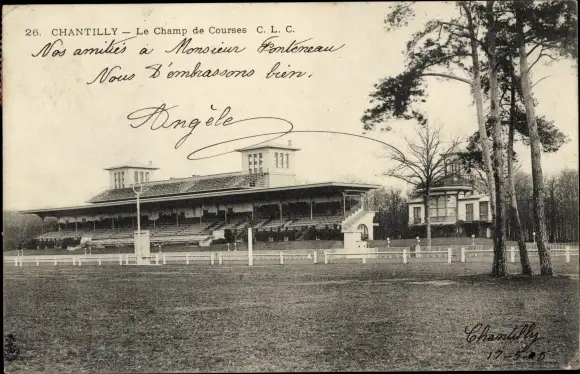 26. CHANTILLY — Le Champ de Courses C. L. C.
Nos amitiés à Monsieur Fonteneau
Nous D'embrassons bien.
Angèle
Chantilly
17-5-05